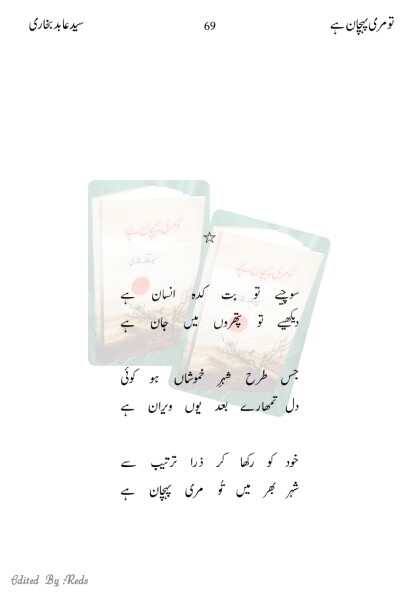 تو مری پہچان ہے 69 سید عابد بخاری
☆
سوچیے تو بت کدہ انسان ہے
دیکھیے تو پتھروں میں جان ہے
جس طرح شہرِ خموشاں ہو کوئی
دل تمھارے بعد یوں ویران ہے
خود کو رکھا کر ذرا ترتیب سے
شہر بھر میں تُو مری پہچان ہے
تو مری پہچان ہے
تو مری پہچان ہے
Edited By :Reds